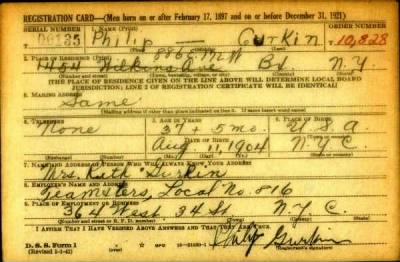 REGISTRATION CARD—(Men born on or after February 17, 1897 and on or before December 31, 1921)
SERIAL NUMBER
1. NAME (Print)
ORDER NUMBER
Philip Gurkin
T 10,828
2. PLACE OF RESIDENCE (Print)
Wilkins Ave Bx N.Y.
(Number and street) (Town, township, village, or city) (County) (State)
[THE PLACE OF RESIDENCE GIVEN ON THE LINE ABOVE WILL DETERMINE LOCAL BOARD
JURISDICTION; LINE 2 OF REGISTRATION CERTIFICATE WILL BE IDENTICAL]
3. MAILING ADDRESS
Same
[Mailing address if other than place indicated on line 2. If same insert word same]
4. TELEPHONE
5. AGE IN YEARS
6. PLACE OF BIRTH
None
37 + 5 mo.
U.S.A.
DATE OF BIRTH
Aug. 11, 1904
N.Y.C.
(Exchange) (Number) (Mo.) (Day) (Yr.) (State or country)
7. NAME AND ADDRESS OF PERSON WHO WILL ALWAYS KNOW YOUR ADDRESS
Mrs. Ruth Gurkin
8. EMPLOYER'S NAME AND ADDRESS
Teamsters, Local No. 816
9. PLACE OF EMPLOYMENT OR BUSINESS
364 West 34 St N.Y.C.
(Number and street or R. F. D. number) (Town) (County) (State)
I AFFIRM THAT I HAVE VERIFIED ABOVE ANSWERS AND THAT THEY ARE TRUE.
D. S. S. Form 1
(Revised 1-1-42)
Philip Gurkin
(Registrant's signature)